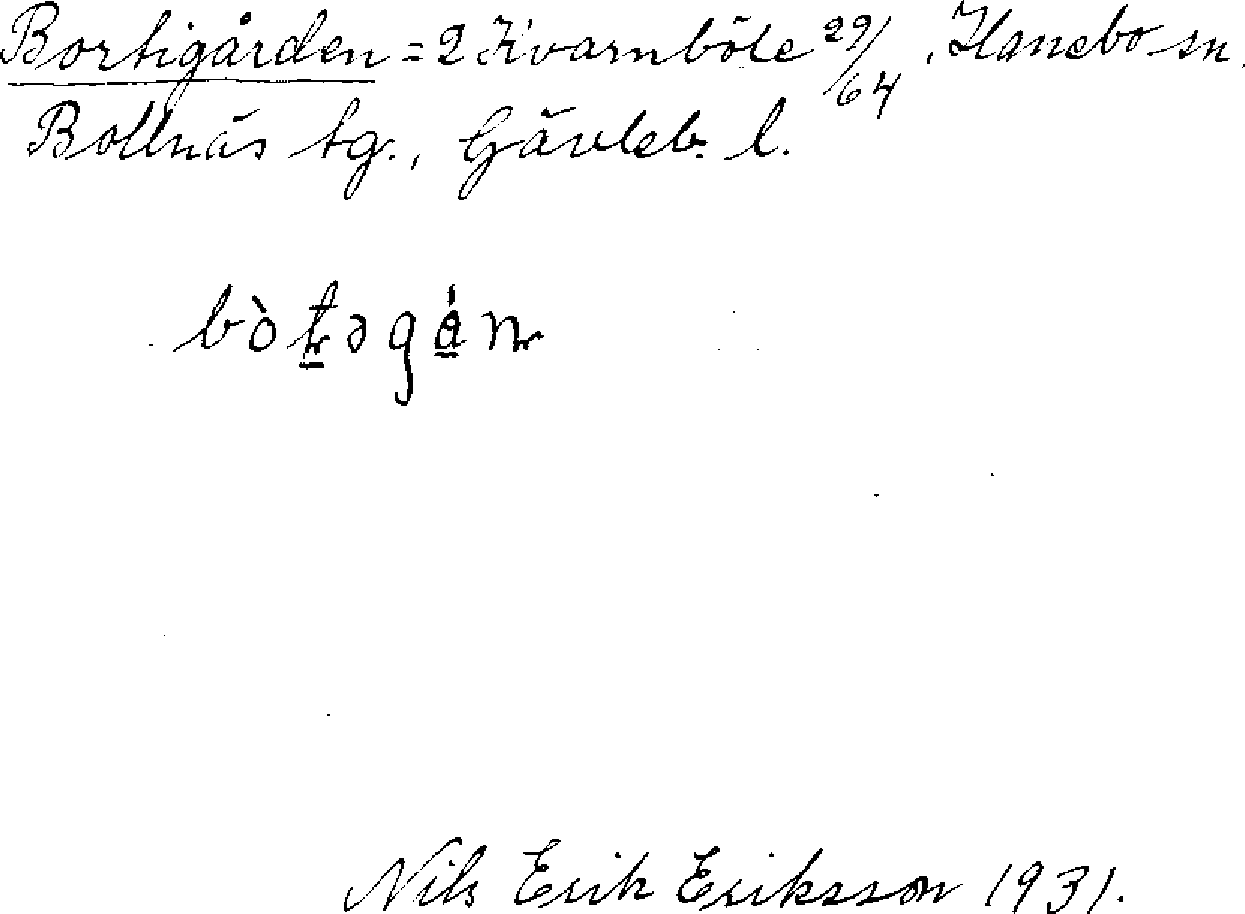 Bortigården = 2 Kvarnböle 29/64, Hanebo sn.
Bollnäs tg., Gävleb. l.
Nils Erik Eriksson 1931.